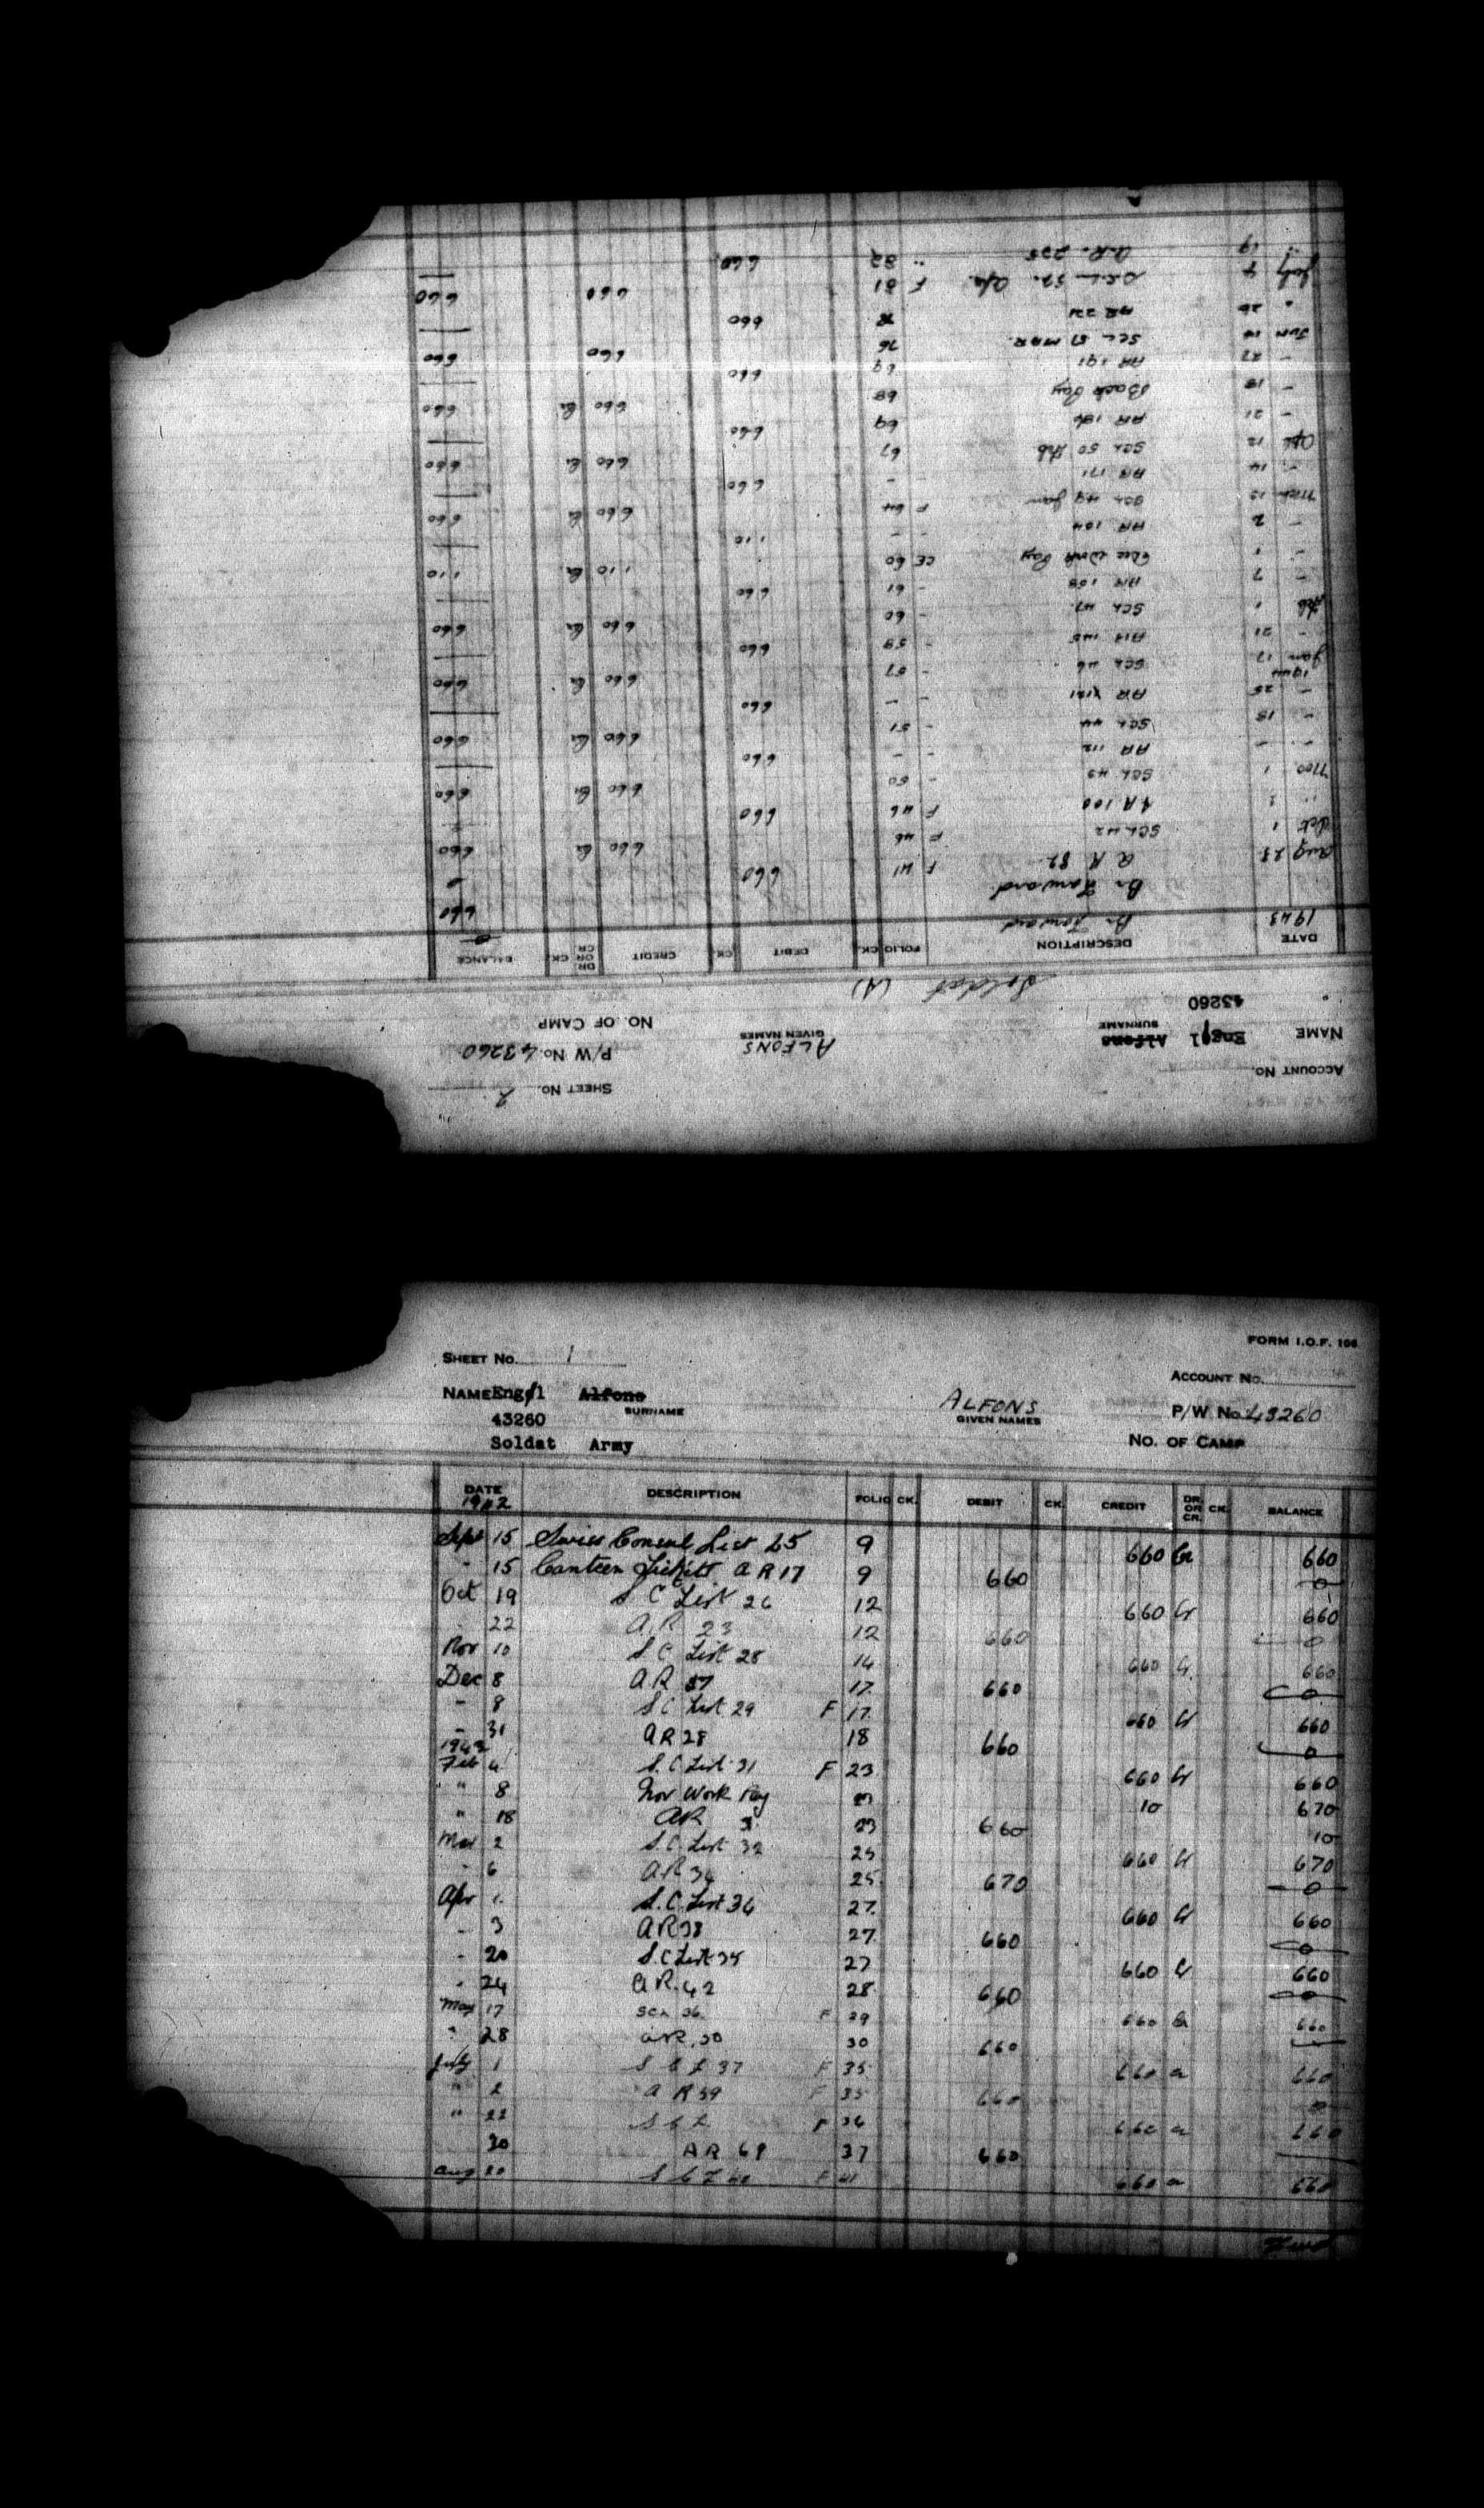 FORM I.O.F. 106
SHEET No. 1
ACCOUNT No.
NAME Engel Alfons ALFONS
SURNAME GIVEN NAMES
P/W No. 43260
43260
Soldat Army
No. OF CAMP
DATE DESCRIPTION FOLIO CK. DEBIT CK. CREDIT DR. OR CR. CK. BALANCE
1942
Sept 15 Swiss Consul List 25 9 660 Cr 660
" 15 Canteen Tickets A R 17 9 660 0
Oct 19 S C List 26 12 660 Cr 660
22 A.R 23 12 660 0
Nov 10 S.C. List 28 14 660 Cr. 660
Dec 8 A.R 27 17 660 0
- 8 S C List 29 F 17 660 Cr 660
- 31 AR 28 18 660 0
1943
Feb 4 S.C List 31 F 23 660 Cr 660
" 8 Nov Work Pay 23 10 670
" 18 AR 23 660 10
Mar 2 S.C. List 32 25 660 Cr 670
- 6 AR 34 25 670 0
Apr 1 S.C. List 34 27 660 Cr 660
- 3 AR 38 27 660 0
- 20 S.C List 35 27 660 Cr 660
- 24 A R. 42 28 660 0
May 17 SCL 36 F 29 660 Cr 660
" 28 AR. 50 30 660
July 1 S C L 37 F 35 660 Cr 660
" 2 A R 59 F 35 660 0
" 22 S C L F 36 660 Cr 660
30 AR 69 37 660
Aug 20 S C L 40 F 41 660 Cr 660
SHEET No. 2
ACCOUNT No.
NAME Engel Alfons ALFONS
SURNAME GIVEN NAMES
P/W No. 43260
43260
NO. OF CAMP
Soldat (A)
DATE DESCRIPTION FOLIO CK. DEBIT CK. CREDIT DR OR CR CK. BALANCE
1943 Br Forward 660
Br Forward
Aug 28 A R 82 F 41 660 0
Oct 1 SCL 42 F 46 660 Cr 660
" 2 AR 100 F 46 660
Nov 1 SCL 43 - 50 660 Cr 660
- - AR 112 - - 660
- 18 SCL 44 - 51 660 Cr 660
- 25 AR 121 - - 660
1944
Jan 17 SCL 46 - 57 660 Cr 660
- 21 AR 145 - 59 660
Feb 1 SCL 47 - 60 660 Cr 660
- 7 AR 158 - 61 660
- 1 Dec Work Pay CE 60 110 Cr 110
- 2 AR 104 - - 110
Mch 13 SCL 49 Jan F 64 660 Cr 660
- 14 AR 171 - - 660
Apl 12 SCL 50 Feb 67 660 Cr 660
- 21 AR 186 69 660
- 18 Back Pay 68 660 Cr 660
- 27 AR 191 69 660
Jun SCL 51 MAR. 76 660 660
" 26 AR 221 660
July 4 S.C.L 52. Apl. F 81 660 660
" 19 A.R. 225 " 82 660